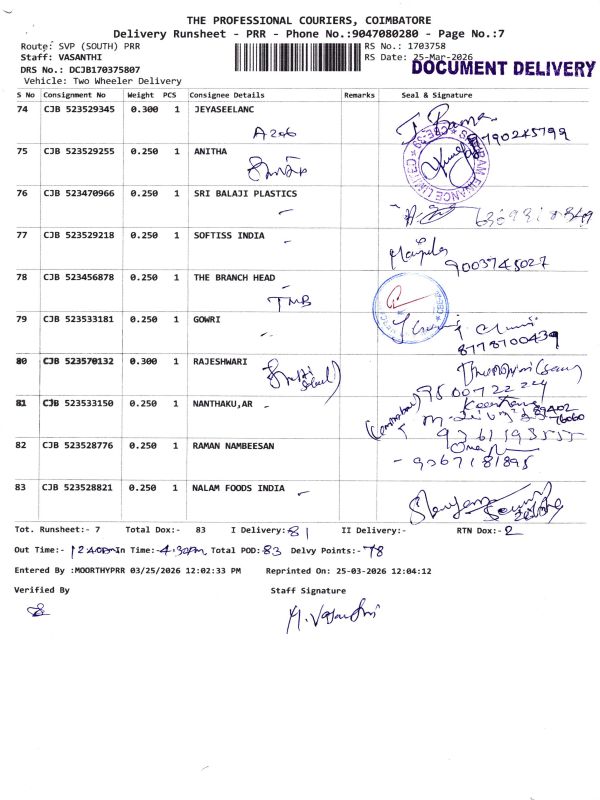 THE PROFESSIONAL COURIERS, COIMBATORE
Delivery Runsheet - PRR - Phone No.:9047080280 - Page No.:7
Route: SVP (SOUTH) PRR
RS No.: 1703758
Staff: VASANTHI
RS Date: 25-Mar-2026
DRS No.: DCJB170375807
DOCUMENT DELIVERY
Vehicle: Two Wheeler Delivery
S No Consignment No Weight PCS Consignee Details Remarks Seal & Signature
74 CJB 523529345 0.300 1 JEYASEELANC
A206
9790245799
75 CJB 523529255 0.250 1 ANITHA
76 CJB 523470966 0.250 1 SRI BALAJI PLASTICS
77 CJB 523529218 0.250 1 SOFTISS INDIA
9003745027
78 CJB 523456878 0.250 1 THE BRANCH HEAD
TMB
79 CJB 523533181 0.250 1 GOWRI
8778700439
80 CJB 523570132 0.300 1 RAJESHWARI
9500722224
81 CJB 523533150 0.250 1 NANTHAKU,AR
82 CJB 523528776 0.250 1 RAMAN NAMBEESAN
9367181895
83 CJB 523528821 0.250 1 NALAM FOODS INDIA
Tot. Runsheet:- 7 Total Dox:- 83 I Delivery:- 81 II Delivery:- RTN Dox:- 2
Out Time:- 12.40pm In Time:- 4.30pm Total POD:- 83 Delvy Points:- 78
Entered By :MOORTHYPRR 03/25/2026 12:02:33 PM Reprinted On: 25-03-2026 12:04:12
Verified By Staff Signature
M. Vasanthi